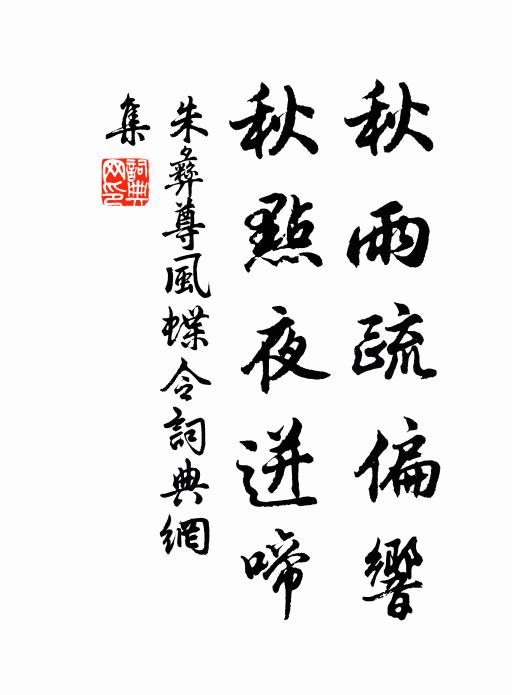 秋雨疏偏響
秋點夜迸啼
朱彝尊風蝶令詞典網
集
詞典网印